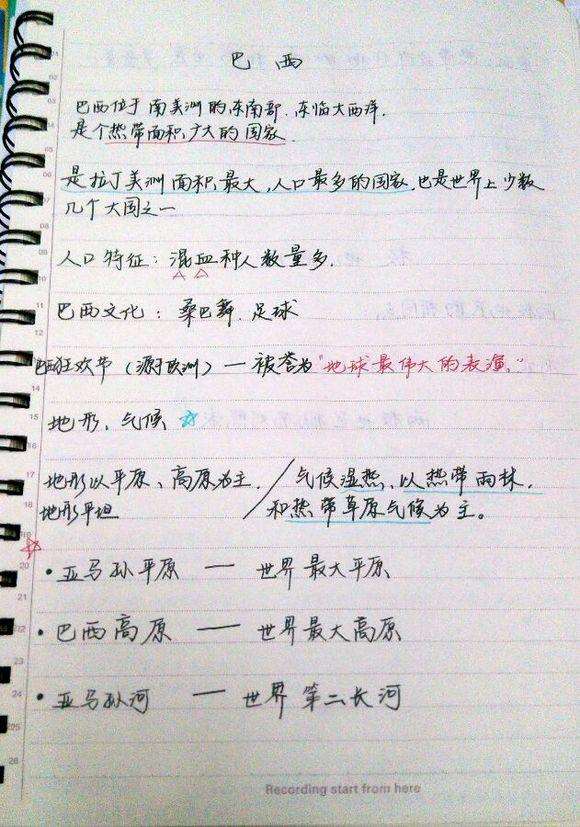 巴西
巴西位于南美洲的东南部、东临大西洋.
是个热带面积广大的国家.
是拉丁美洲面积最大,人口最多的国家,也是世界上少数
几个大国之一
人口特征:混血种人数量多.
巴西文化:桑巴舞.足球
巴西狂欢节(源于欧洲)—被誉为"地球最伟大的表演."
地形、气候 ☆
地形以平原、高原为主. / 气候湿热,以热带雨林.
地形平坦 / 和热带草原气候为主。
☆
• 亚马孙平原 — 世界最大平原
• 巴西高原 — 世界最大高原
• 亚马孙河 — 世界第二长河
Recording start from here